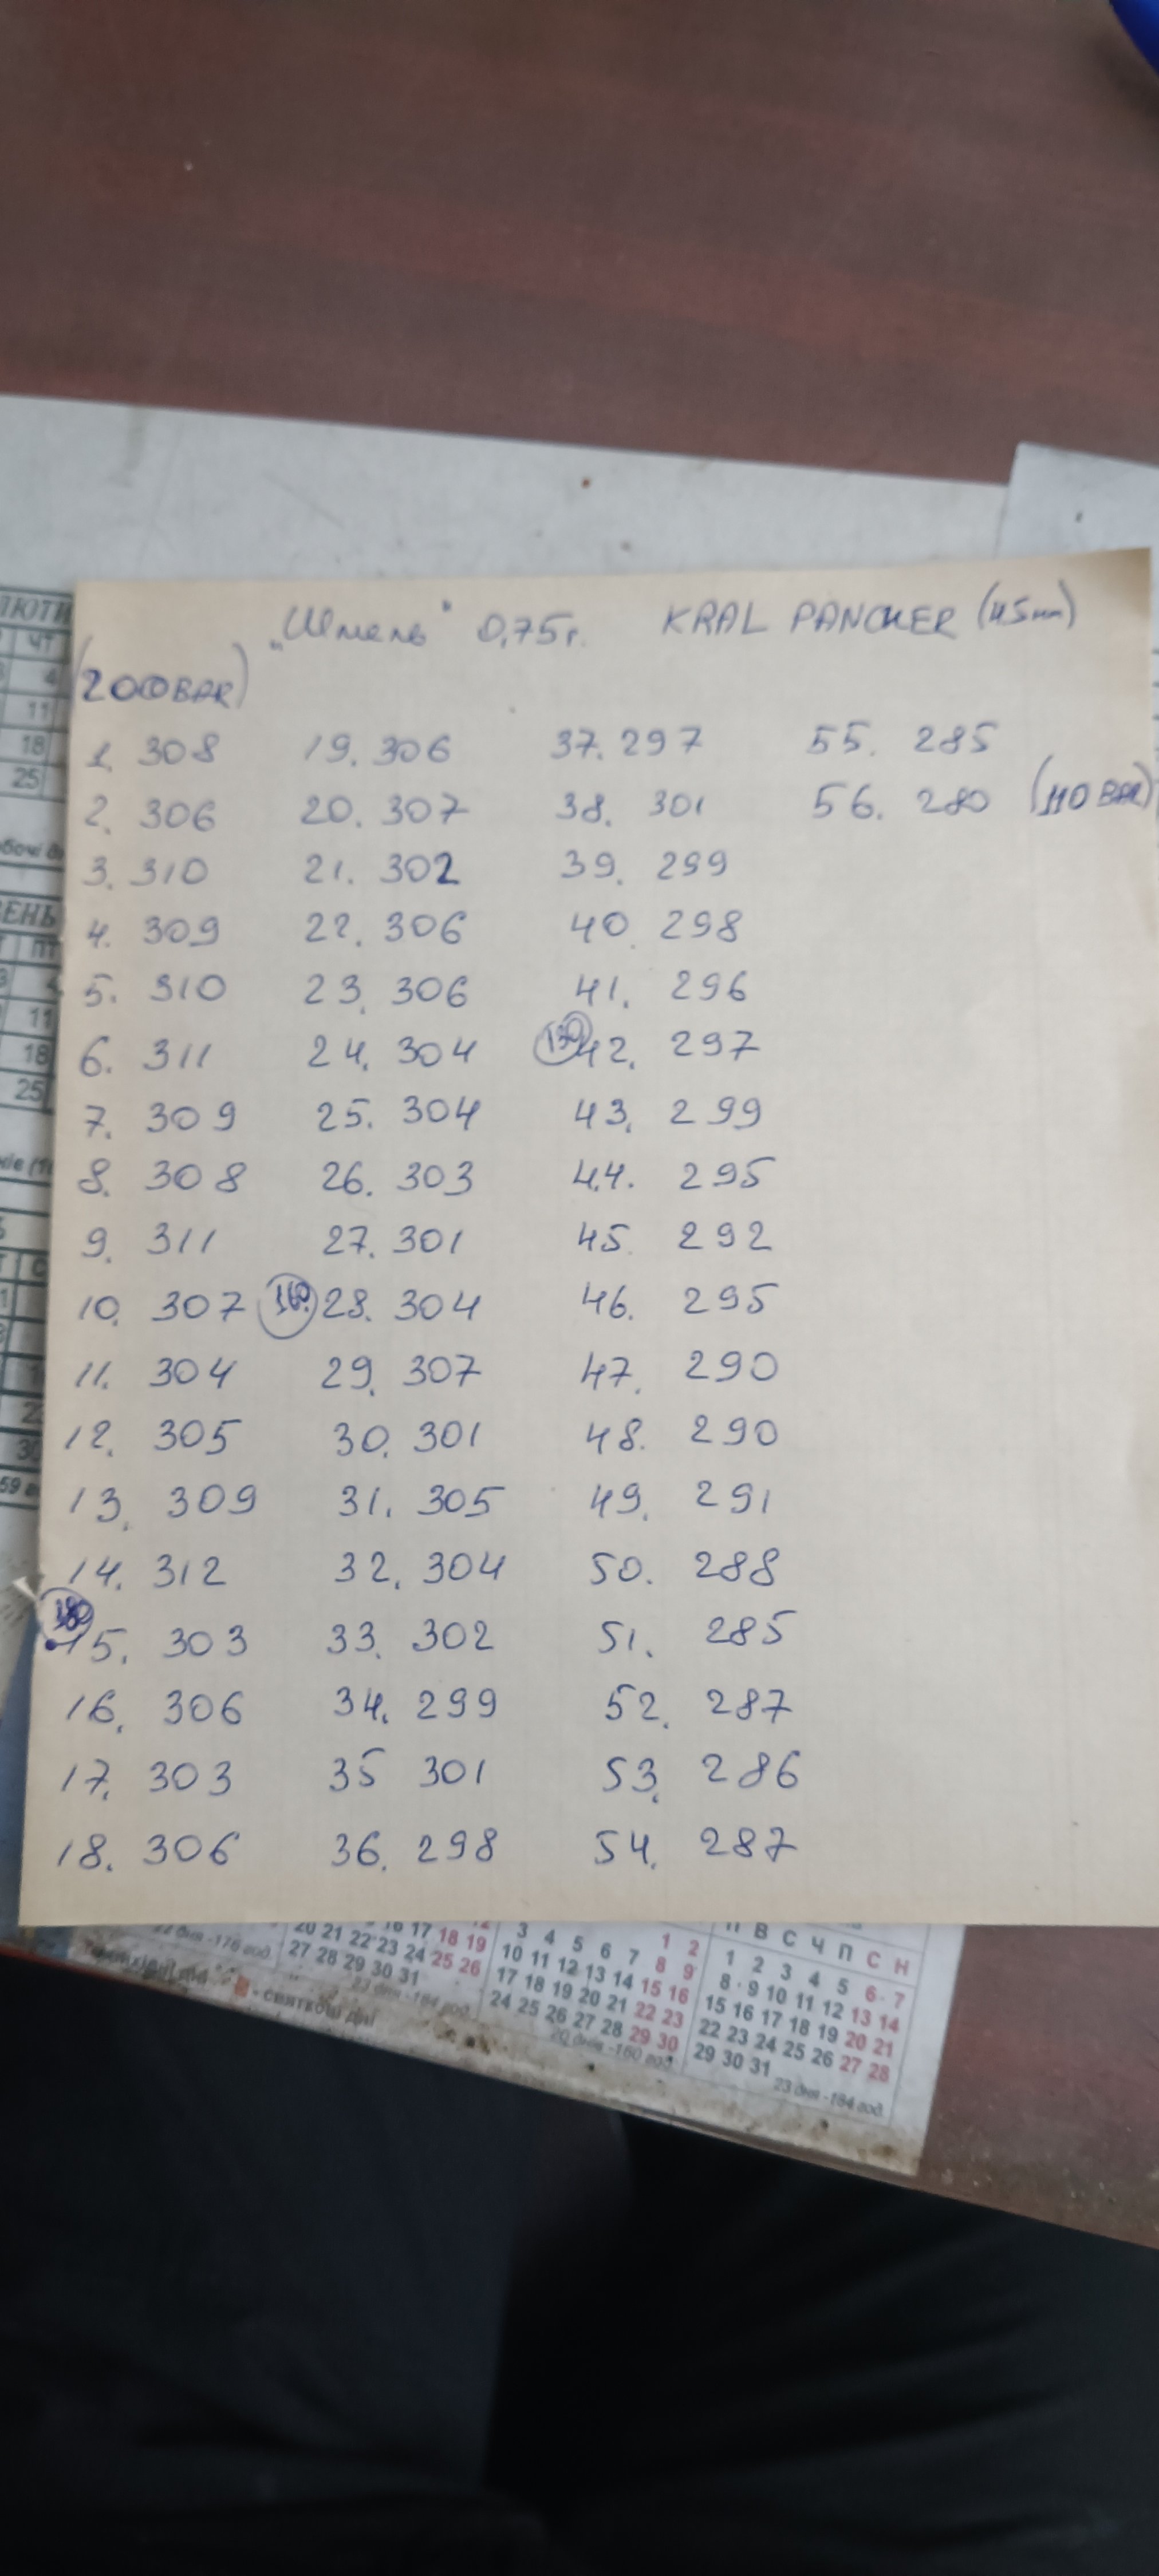 „Шмель" 0,75г. KRAL PANCHER (4,5мм)
(200BAR)
1. 308 19. 306 37. 297 55. 285
2. 306 20. 307 38. 301 56. 280 (110 BAR)
3. 310 21. 302 39. 299
4. 309 22. 306 40. 298
5. 310 23. 306 41. 296
6. 311 24. 304 (130) 42. 297
7. 309 25. 304 43. 299
8. 308 26. 303 44. 295
9. 311 27. 301 45. 292
10. 307 (160) 28. 304 46. 295
11. 304 29. 307 47. 290
12. 305 30. 301 48. 290
13. 309 31. 305 49. 291
14. 312 32. 304 50. 288
(180) 15. 303 33. 302 51. 285
16. 306 34. 299 52. 287
17. 303 35 301 53. 286
18. 306 36. 298 54. 287
ЧТ
4
11
18
25
ПТ
4
11
18
25
20 21 22 23 24 25 26
27 28 29 30 31
16 17 18 19
1 2
3 4 5 6 7 8 9
10 11 12 13 14 15 16
17 18 19 20 21 22 23
24 25 26 27 28 29 30
20 днів -160 год.
П В С Ч П С Н
1 2 3 4 5 6 7
8 9 10 11 12 13 14
15 16 17 18 19 20 21
22 23 24 25 26 27 28
29 30 31
23 дня -184 год.
- святкові дні